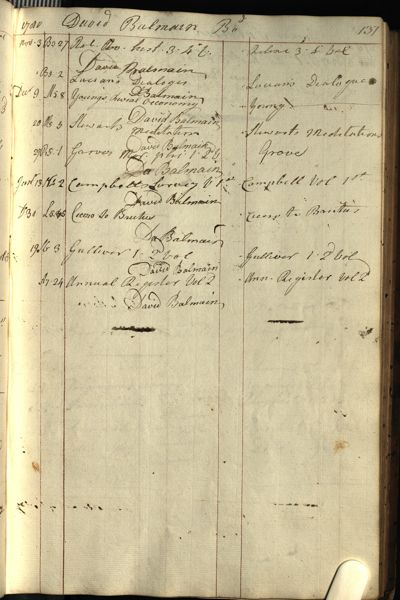 1780 David Balmain 137
Nov. 3 Bo 27 hist. 3. 4 & 3 & bol
David Balmain
Bs 2 Lucians Dialogues Lucians Dialogue
D Balmain
Dec 9 Ms 8 Youngs œconomy Young
David Balmain
20 5 Stewarts meditations Stewarts Meditations
David Balmain
1 1 & 2 Grove
Da Balmain
13 2 Campbells Survey V 1st Campbell Vol 1st
David Balmain
31 Cicero to Brutus Cicero to Brutus
Da Balmain
19 3 Gulliver 1. 2 vol Gulliver 1. 2 Vol
David Balmain
24 Annual Register Vol 2 Ann. Register Vol 2
David Balmain